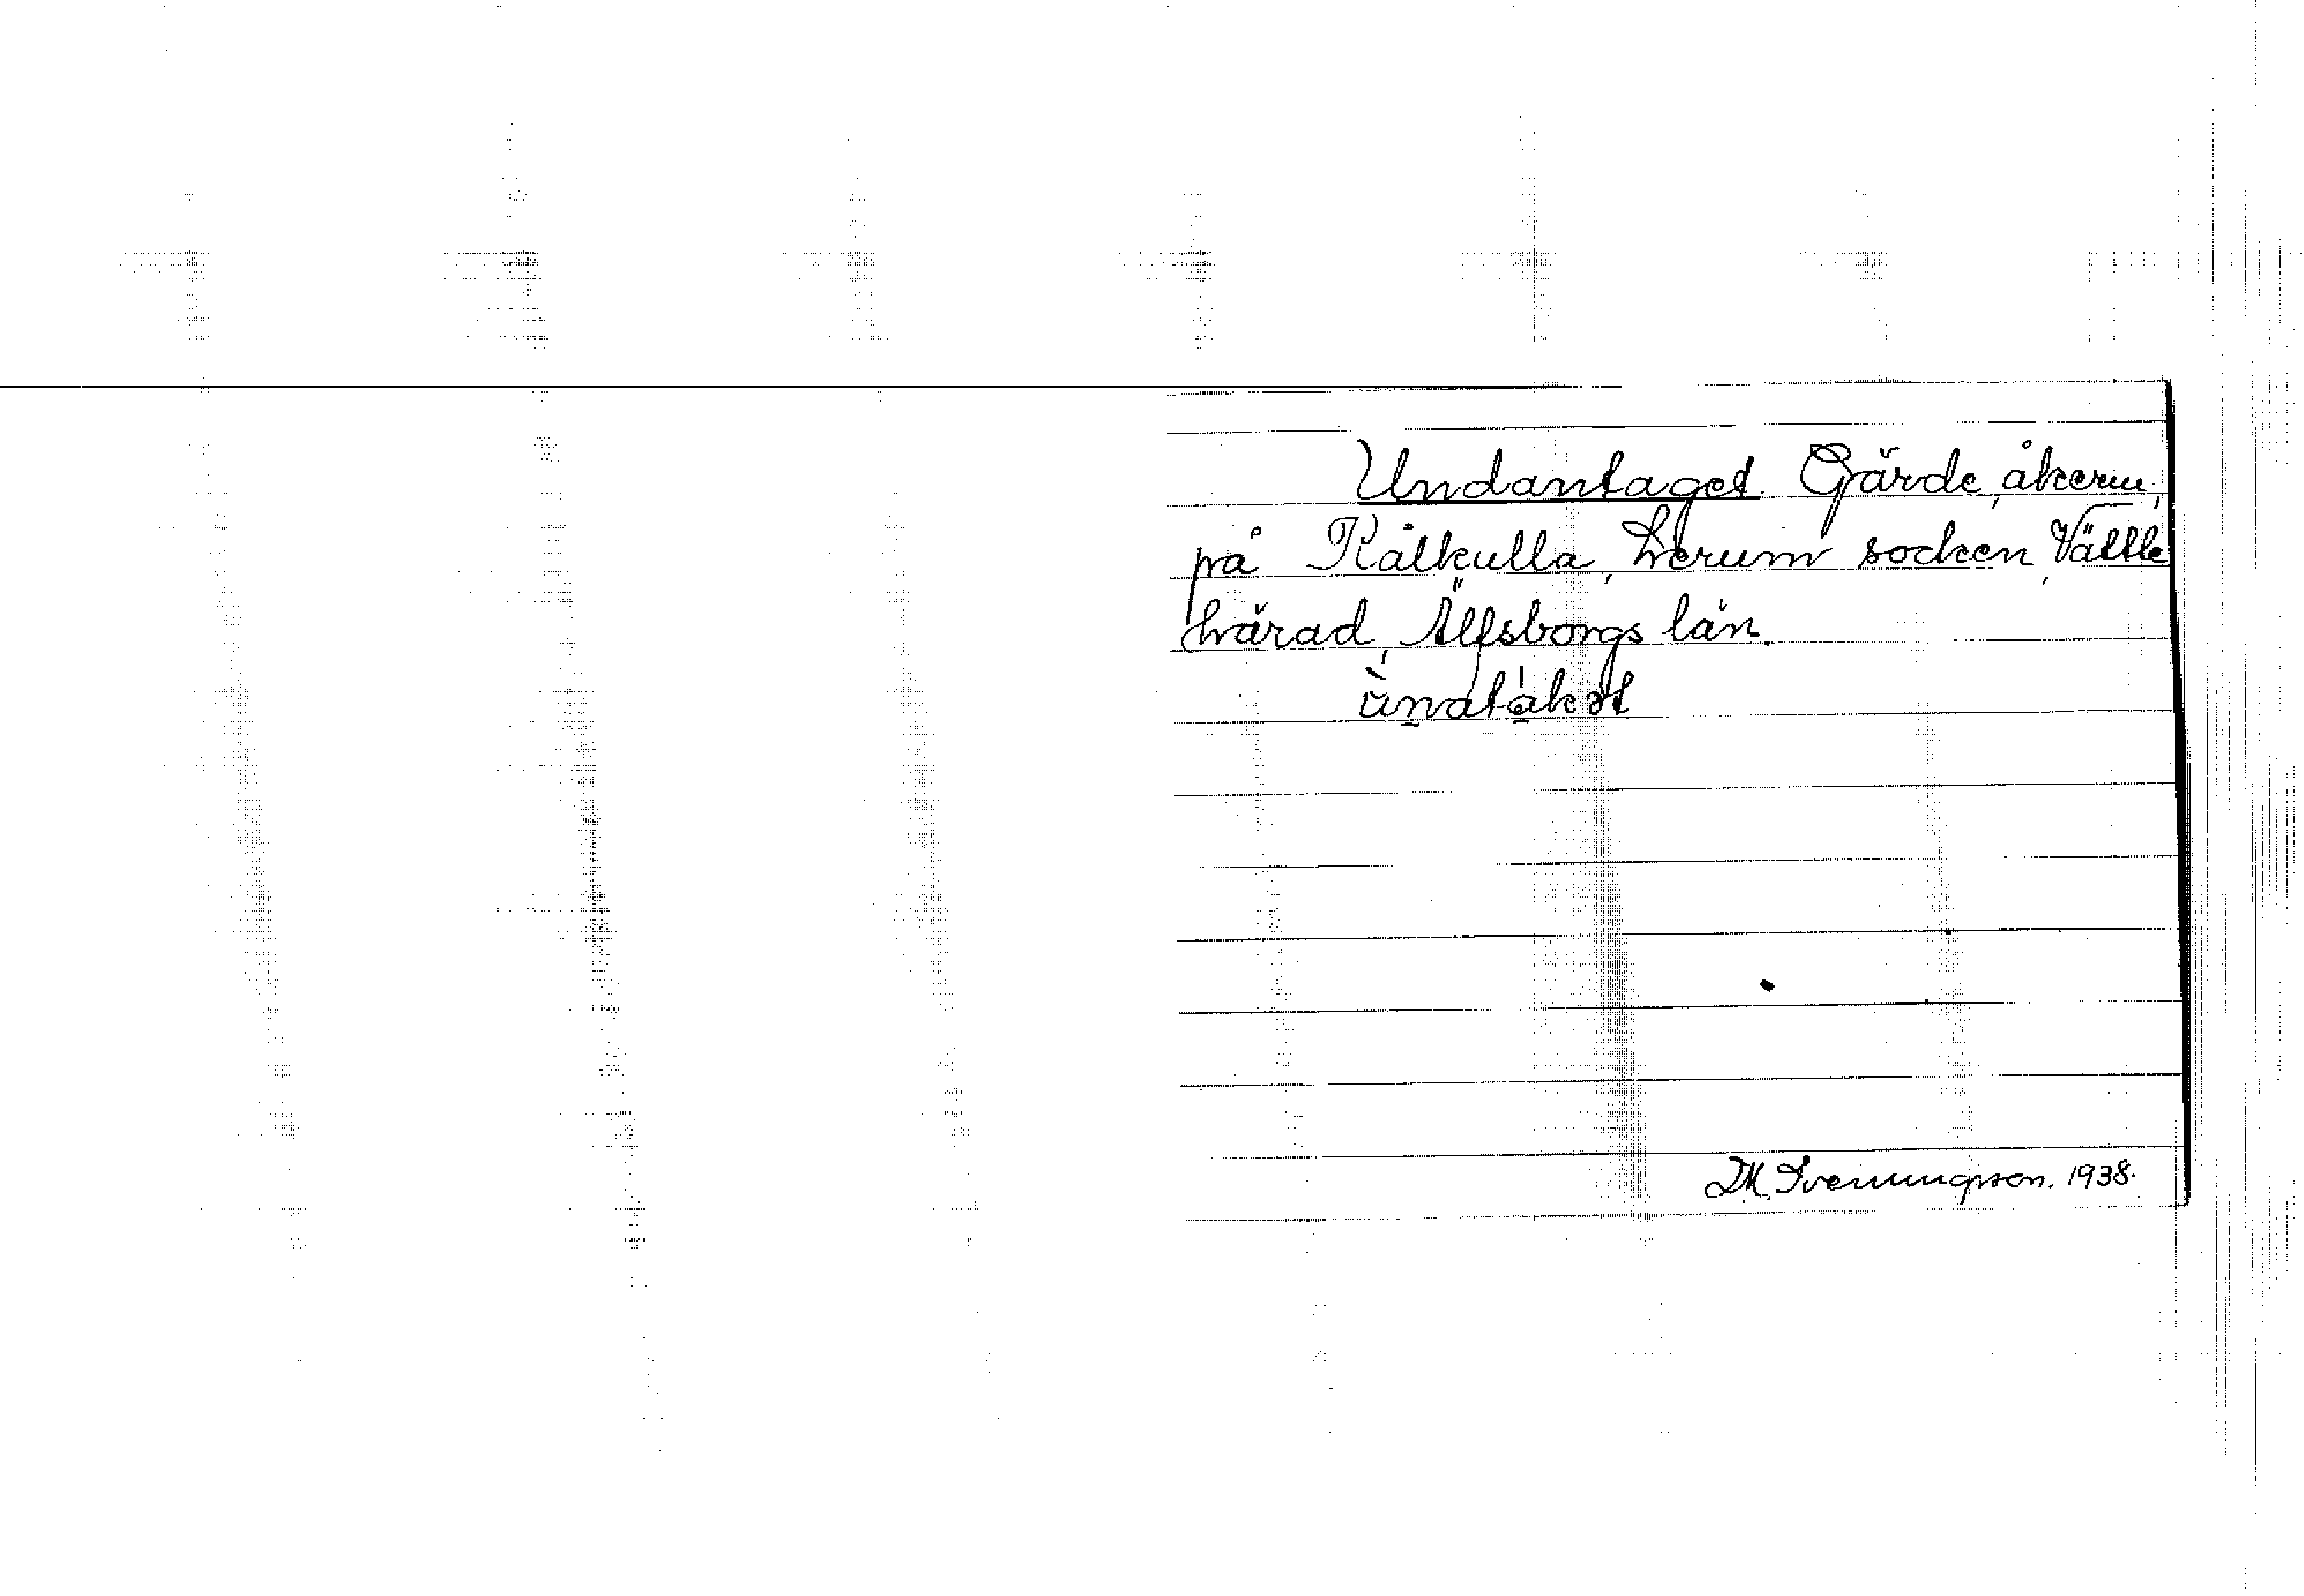 Undantaget. Gärde, åkerm.,
på Kålkulla, Lerum socken, Vättle
härad, Älfsborgs län.
ùndtàkət
D.M. Svenningsson. 1938.